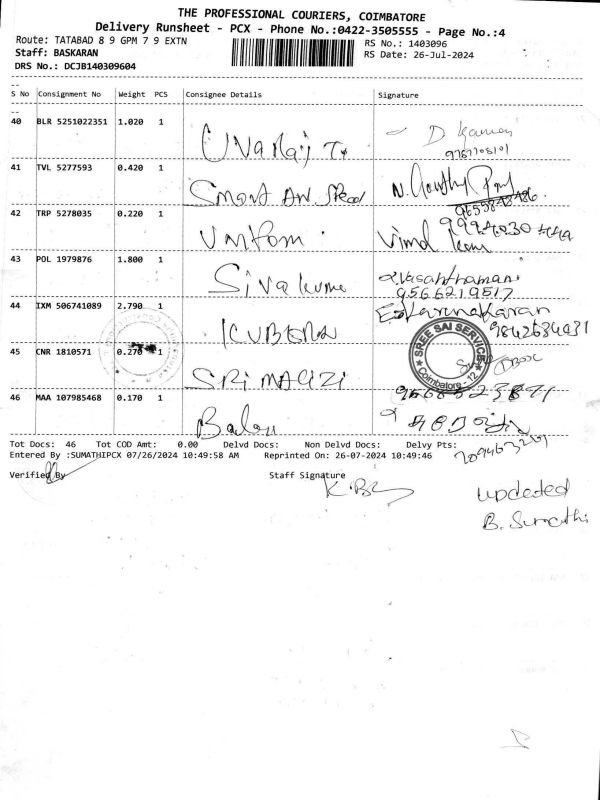 THE PROFESSIONAL COURIERS, COIMBATORE
Delivery Runsheet - PCX - Phone No.:0422-3505555 - Page No.:4
Route: TATABAD 8 9 GPM 7 9 EXTN RS No.: 1403096
Staff: BASKARAN RS Date: 26-Jul-2024
DRS No.: DCJB140309604
S No Consignment No Weight PCS Consignee Details Signature
40 BLR 5251022351 1.020 1
D Kannan
41 TVL 5277593 0.420 1
Smart
42 TRP 5278035 0.220 1 Uniform
Vimal
43 POL 1979876 1.800 1 Siva kumar Vasanthamani
9566219517
44 IXM 506741089 2.790 1 KUBERA E. Karunakaran
9842634031
SREE SAI SERVICE
Coimbatore - 12
45 CNR 1810571 0.270 1 SRI MAGIZI
46 MAA 107985468 0.170 1 Babu
Tot Docs: 46 Tot COD Amt: 0.00 Delvd Docs: Non Delvd Docs: Delvy Pts:
Entered By :SUMATHIPCX 07/26/2024 10:49:58 AM Reprinted On: 26-07-2024 10:49:46
Verified By Staff Signature
updated
B. Sumathi